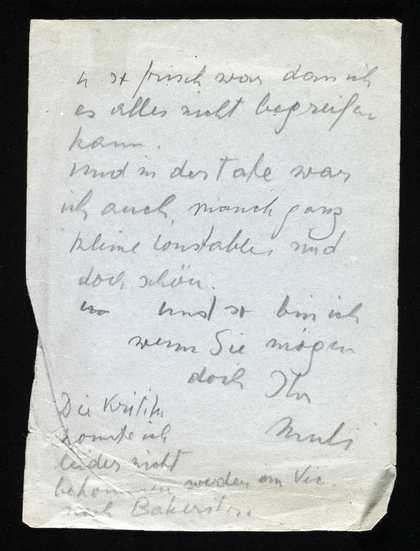 u so frisch war dass ich
es alles nicht begreifen
kann.
Und in der Tate war
ich auch, manch ganz
kleine Constables sind
doch schön.
und so bin ich
wenn Sie mögen
doch Ihr
Die Kritik
konnte ich
leider nicht
bekommen werden am Vic
nach Bakerstr.